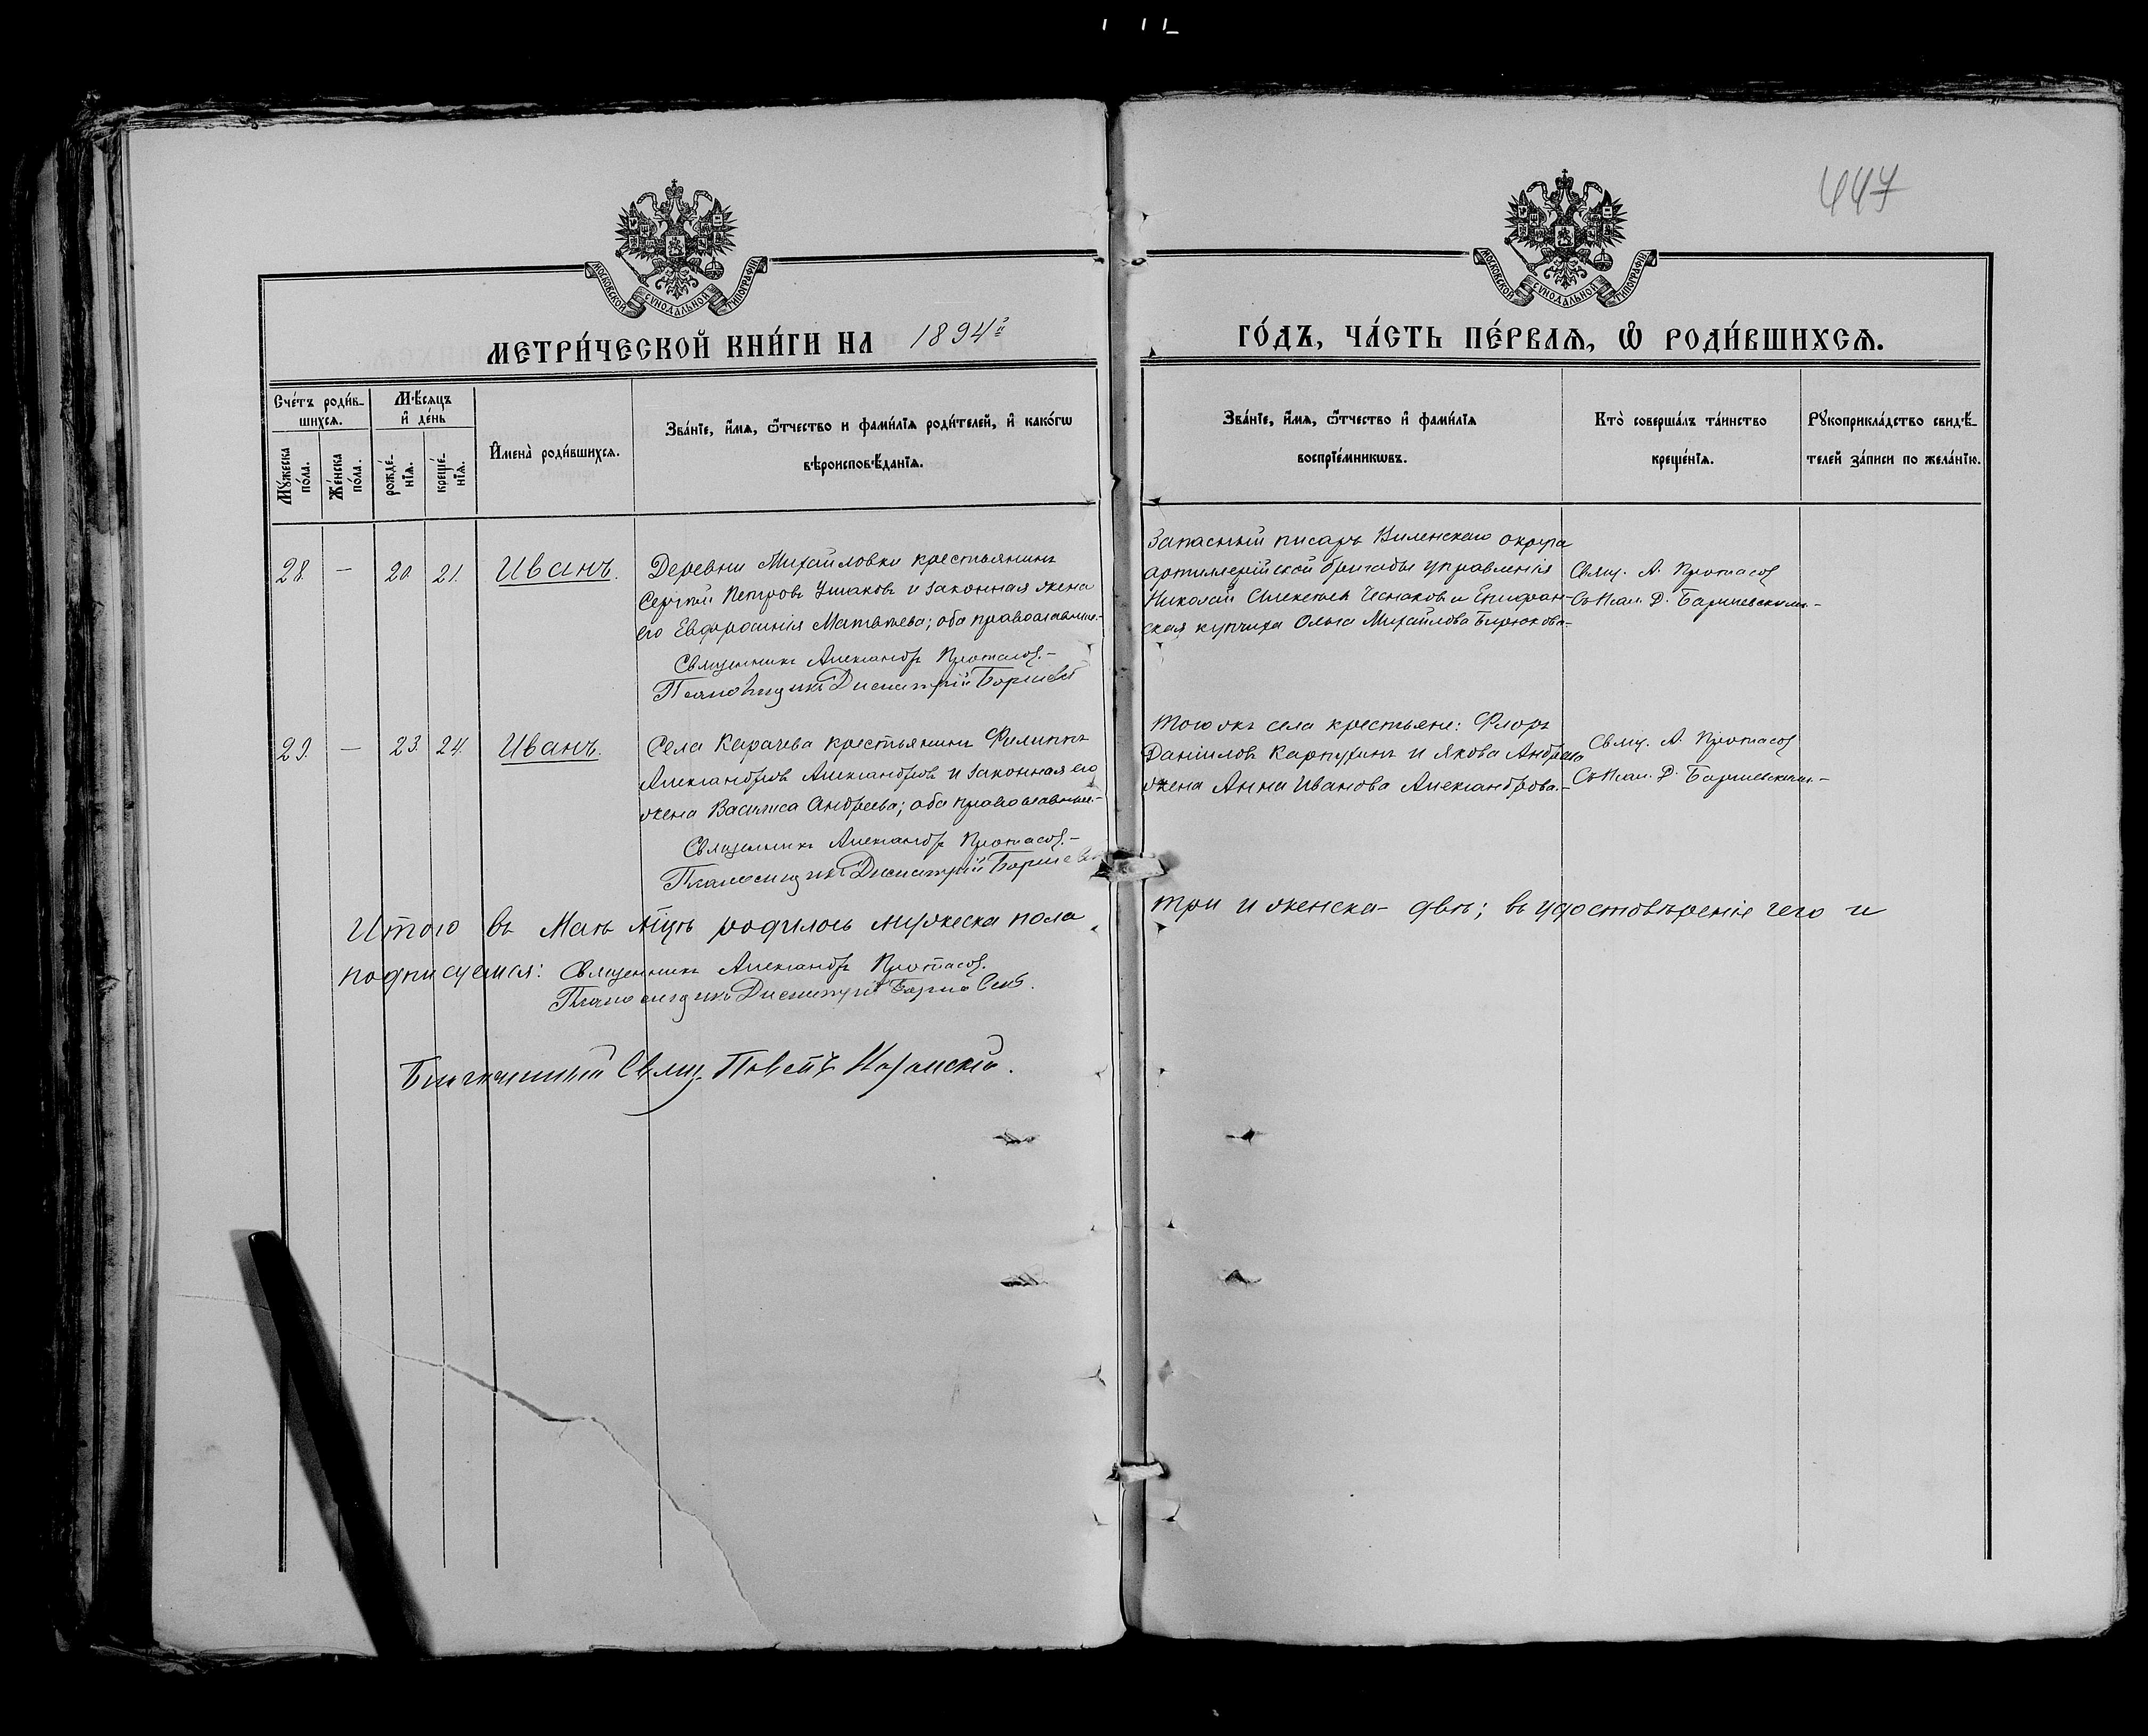 447
МОСКОВСКОЙ СѴНОДАЛЬНОЙ ТИПОГРАФІИ
МОСКОВСКОЙ СѴНОДАЛЬНОЙ ТИПОГРАФІИ
МЕТРИ́ЧЕСКОЙ КНИ́ГИ НА 1894й
ГО́ДЪ, ЧА́СТЬ ПЕ́РВАѦ, Ѡ҆ РОДИ́ВШИХСѦ.
Сче́тъ роди́в-
шихсѧ.
Мѣ́сѧцъ
и҆ де́нь
Мꙋ́жеска
по́ла.
Же́нска
по́ла.
рожде́-
нїѧ.
креще́-
нїѧ.
И҆мена̀ роди́вшихсѧ.
Зва́нїе, и҆́мѧ, ѻ҆́тчество и фами́лїѧ роди́телей, и҆ како́гѡ
вѣроисповѣ́данїѧ.
Зва́нїе, и҆́мѧ, ѻ҆́тчество и҆ фами́лїѧ
воспрїе́мникѡвъ.
Кто̀ соверша́лъ та́инство
креще́нїѧ.
Рꙋкоприкла́дство свидѣ́-
телей за́писи по жела́нїю.
28. — 20. 21. Иванъ.
Деревни Михайловки крестьянинъ
Сергѣй Петровъ Ушаковъ и законная жена
его Евфросинія Матвѣева; оба православные.-
Священникъ Александръ Протасов.-
Псаломщикъ Димитрій
Запасный писарь Виленскаго округа
артиллерійской бригады управленія
Николай Алексѣевъ Чеснаковъ и Епифан-
ская купчиха Ольга Михайлова Бирюкова-
Свящ. А. Протасов
Съ Псал. Д.
29. — 23. 24. Иванъ.
Села Карачева крестьянинъ Филиппъ
Александровъ Александровъ и законная его
жена Василиса Андреева; оба православные.-
Священникъ Александръ Протасов.-
Псаломщикъ Димитрій
Того жъ села крестьяне: Флоръ
Даниловъ Карпухинъ и Якова Андреева
жена Анна Иванова Александрова.-
Свящ. А. Протасов
Съ Псал. Д.
Итого въ Маѣ м҃цѣ родилось мужеска пола
три и женска - двѣ; въ удостовѣреніе чего и
подписуемся: Священникъ Александръ Протасов.
Псаломщикъ Димитрій
Благочинный Свящ. Павелъ Казанскій.